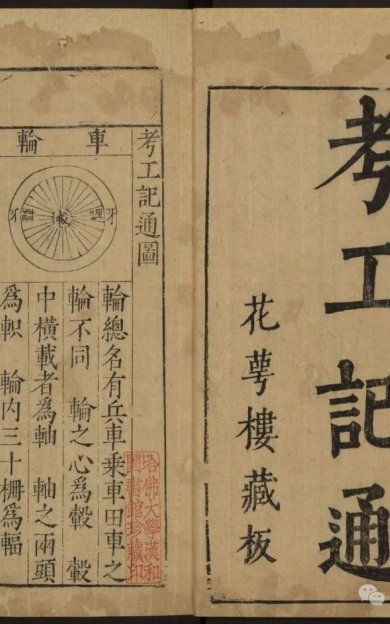 考工記通
花萼樓藏板
考工記通圖
車輪
牙
轂
牙
輪總名有兵車乘車田車之
輪不同 輪之心爲轂 轂
中橫載者爲軸 軸之兩頭
爲軹 輪內三十柵爲輻
哈佛大學漢和
圖書館珍藏印